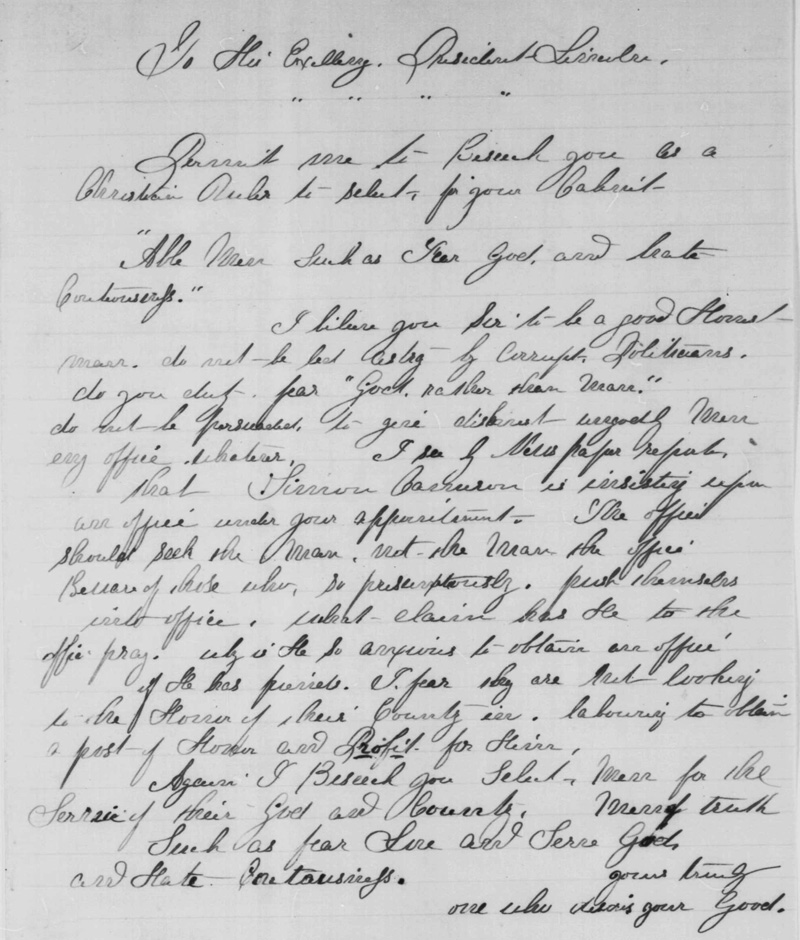 To His Excellency. President Lincoln.
" " " "
Permit me to Beseech you as a
Christian Ruler to select, for your Cabinet
"Able Men Such as Fear God, and hate
Covetousness."
I believe you Sir to be a good Honest
man. do not be led astray by Corrupt, Politicians.
do you duty. fear "God. rather than Man."
do not be persuaded, to give dishonest ungodly Men
any office whatever. I see by News paper reports,
that Simon Cameron is insisting upon
an office under your appointment. The office
should seek the Man, not the Man the office
Beware of those who, so presumptously. push themselves
into office. what claim has He to the
office pray. why is He so anxious to obtain an office
if He has friends. I fear they are Not looking
to the Honor of their Country in. labouring to obtain
a post of Honor and Profit for Him,
Again I Beseech you Select, Men for the
Service of their God and Country. Men of truth
Such as fear Love and Serve God,
and Hate Covetousness.
yours truly
one who desires your Good.